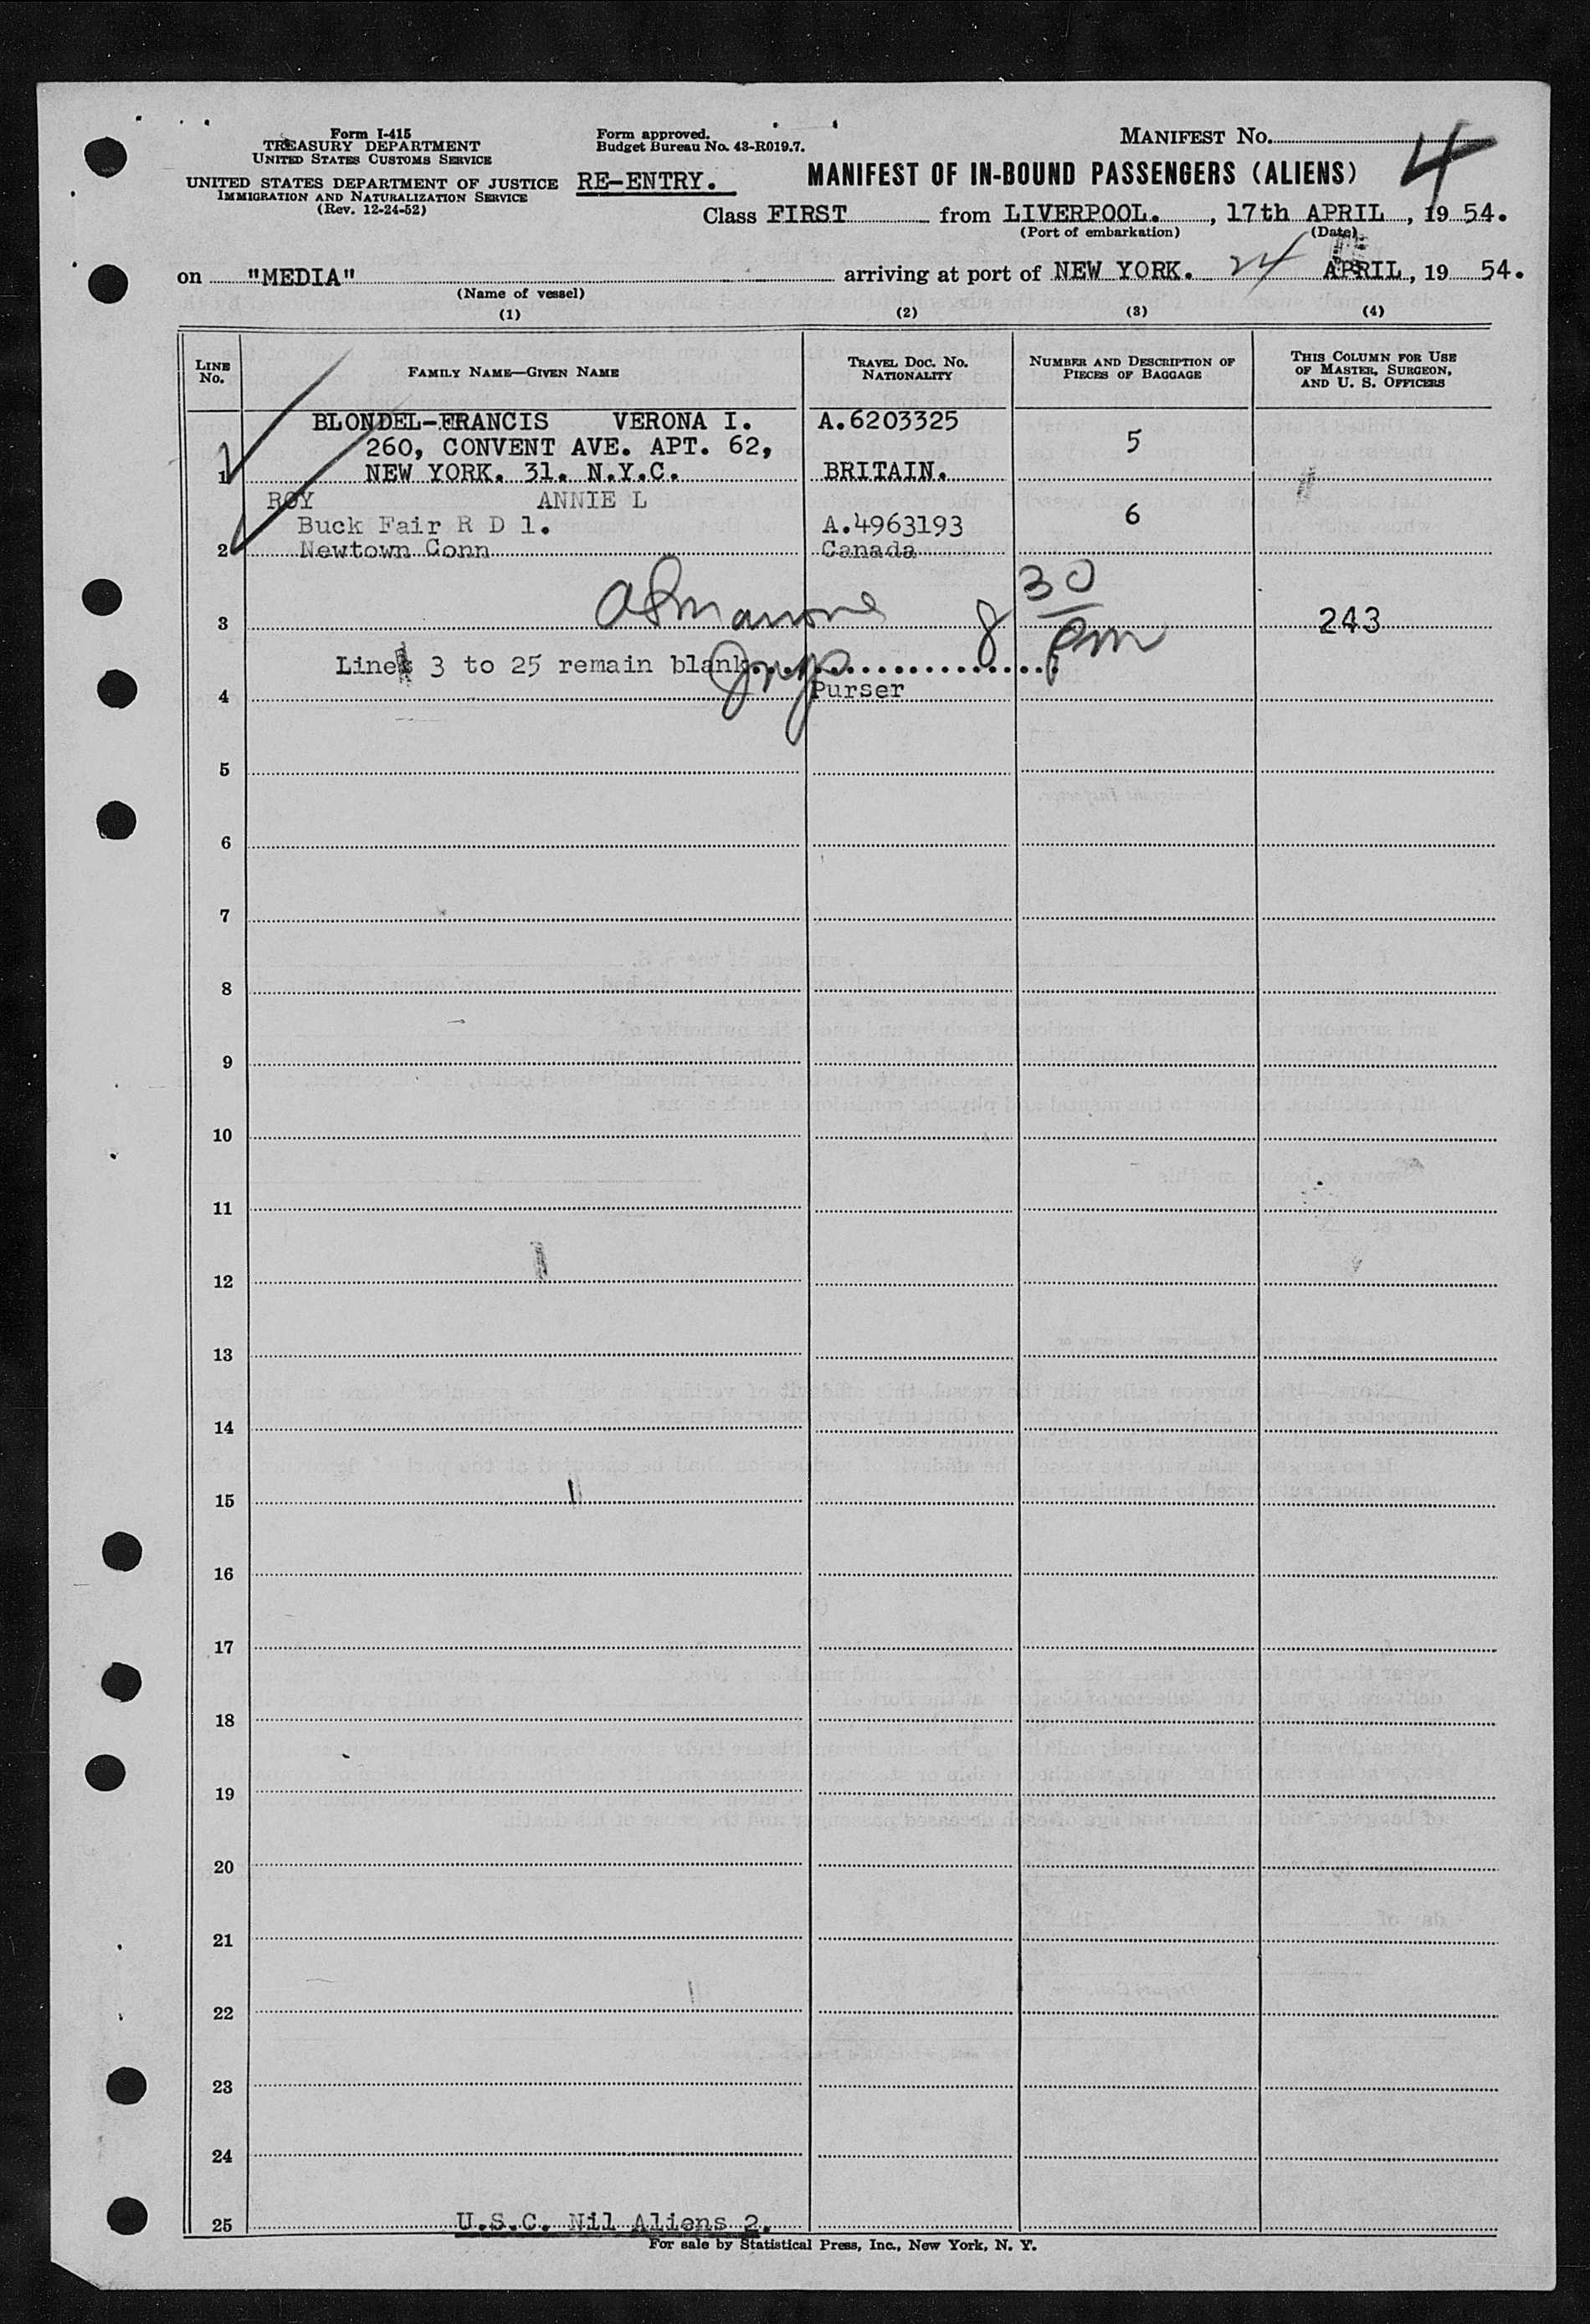 Form I-415
TREASURY DEPARTMENT
UNITED STATES CUSTOMS SERVICE
UNITED STATES DEPARTMENT OF JUSTICE
IMMIGRATION AND NATURALIZATION SERVICE
(Rev. 12-24-52)
Form approved.
Budget Bureau No. 43-R019.7.
RE-ENTRY.
MANIFEST NO. 4
MANIFEST OF IN-BOUND PASSENGERS (ALIENS)
Class FIRST from LIVERPOOL. , 17th APRIL , 19 54.
(Port of embarkation) (Date)
on "MEDIA" arriving at port of NEW YORK. 24 APRIL, 19 54.
(Name of vessel)
(1) (2) (3) (4)
LINE NO.
FAMILY NAME—GIVEN NAME
TRAVEL DOC. NO. NATIONALITY
NUMBER AND DESCRIPTION OF PIECES OF BAGGAGE
THIS COLUMN FOR USE OF MASTER, SURGEON, AND U. S. OFFICERS
BLONDEL-FRANCIS VERONA I. A.6203325
260, CONVENT AVE. APT. 62, 5
1 NEW YORK. 31. N.Y.C. BRITAIN.
ROY ANNIE L
Buck Fair R D 1. A.4963193 6
2 Newtown Conn Canada
3 8 30 pm 243
Line 3 to 25 remain blank
4 Purser
5
6
7
8
9
10
11
12
13
14
15
16
17
18
19
20
21
22
23
24
25 U.S.C. Nil Aliens 2.
For sale by Statistical Press, Inc., New York, N. Y.